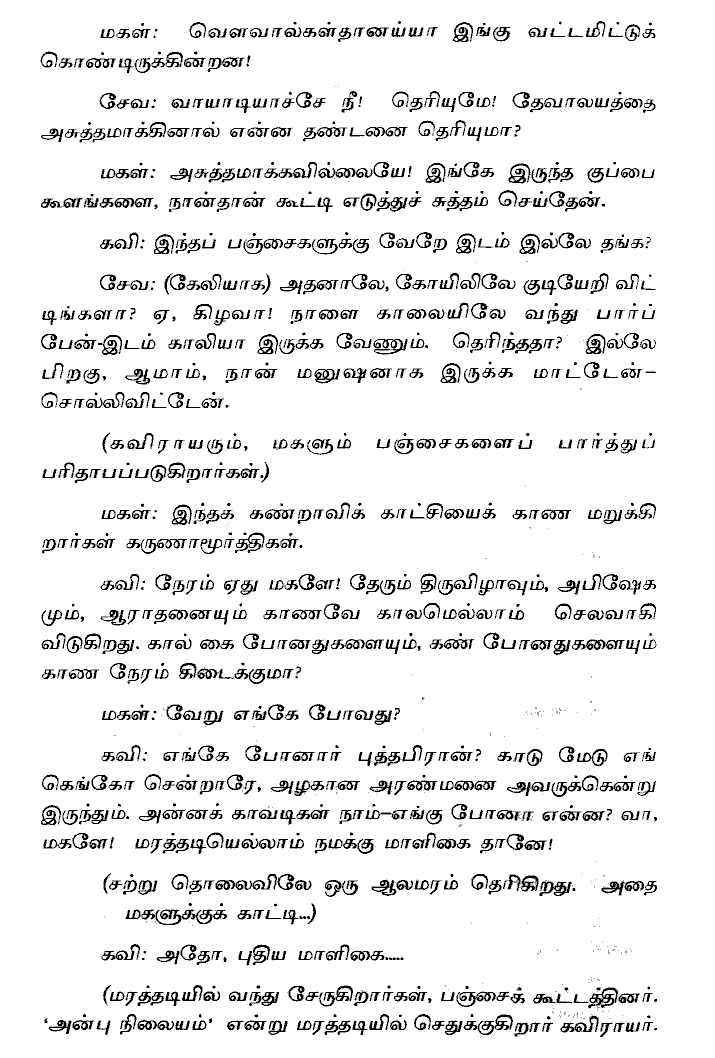 மகள்: வௌவால்கள்தானய்யா இங்கு வட்டமிட்டுக்
கொண்டிருக்கின்றன!
சேவ: வாயாடியாச்சே நீ! தெரியுமே! தேவாலயத்தை
அசுத்தமாக்கினால் என்ன தண்டனை தெரியுமா?
மகள்: அசுத்தமாக்கவில்லையே! இங்கே இருந்த குப்பை
கூளங்களை, நான்தான் கூட்டி எடுத்துச் சுத்தம் செய்தேன்.
கவி: இந்தப் பஞ்சைகளுக்கு வேறே இடம் இல்லே தங்க?
சேவ: (கேலியாக) அதனாலே, கோயிலிலே குடியேறி விட்
டிங்களா? ஏ, கிழவா! நாளை காலையிலே வந்து பார்ப்
பேன்-இடம் காலியா இருக்க வேணும். தெரிந்ததா? இல்லே
பிறகு, ஆமாம், நான் மனுஷனாக இருக்க மாட்டேன்–
சொல்லிவிட்டேன்.
(கவிராயரும், மகளும் பஞ்சைகளைப் பார்த்துப்
பரிதாபப்படுகிறார்கள்.)
மகள்: இந்தக் கண்றாவிக் காட்சியைக் காண மறுக்கி
றார்கள் கருணாமூர்த்திகள்.
கவி: நேரம் ஏது மகளே! தேரும் திருவிழாவும், அபிஷேக
மும், ஆராதனையும் காணவே காலமெல்லாம் செலவாகி
விடுகிறது. கால் கை போனதுகளையும், கண் போனதுகளையும்
காண நேரம் கிடைக்குமா?
மகள்: வேறு எங்கே போவது?
கவி: எங்கே போனார் புத்தபிரான்? காடு மேடு எங்
கெங்கோ சென்றாரே, அழகான அரண்மனை அவருக்கென்று
இருந்தும். அன்னக் காவடிகள் நாம்–எங்கு போனா என்ன? வா,
மகளே! மரத்தடியெல்லாம் நமக்கு மாளிகை தானே!
(சற்று தொலைவிலே ஒரு ஆலமரம் தெரிகிறது. அதை
மகளுக்குக் காட்டி...)
கவி: அதோ, புதிய மாளிகை.....
(மரத்தடியில் வந்து சேருகிறார்கள், பஞ்சைக் கூட்டத்தினர்.
‘அன்பு நிலையம்’ என்று மரத்தடியில் செதுக்குகிறார் கவிராயர்.